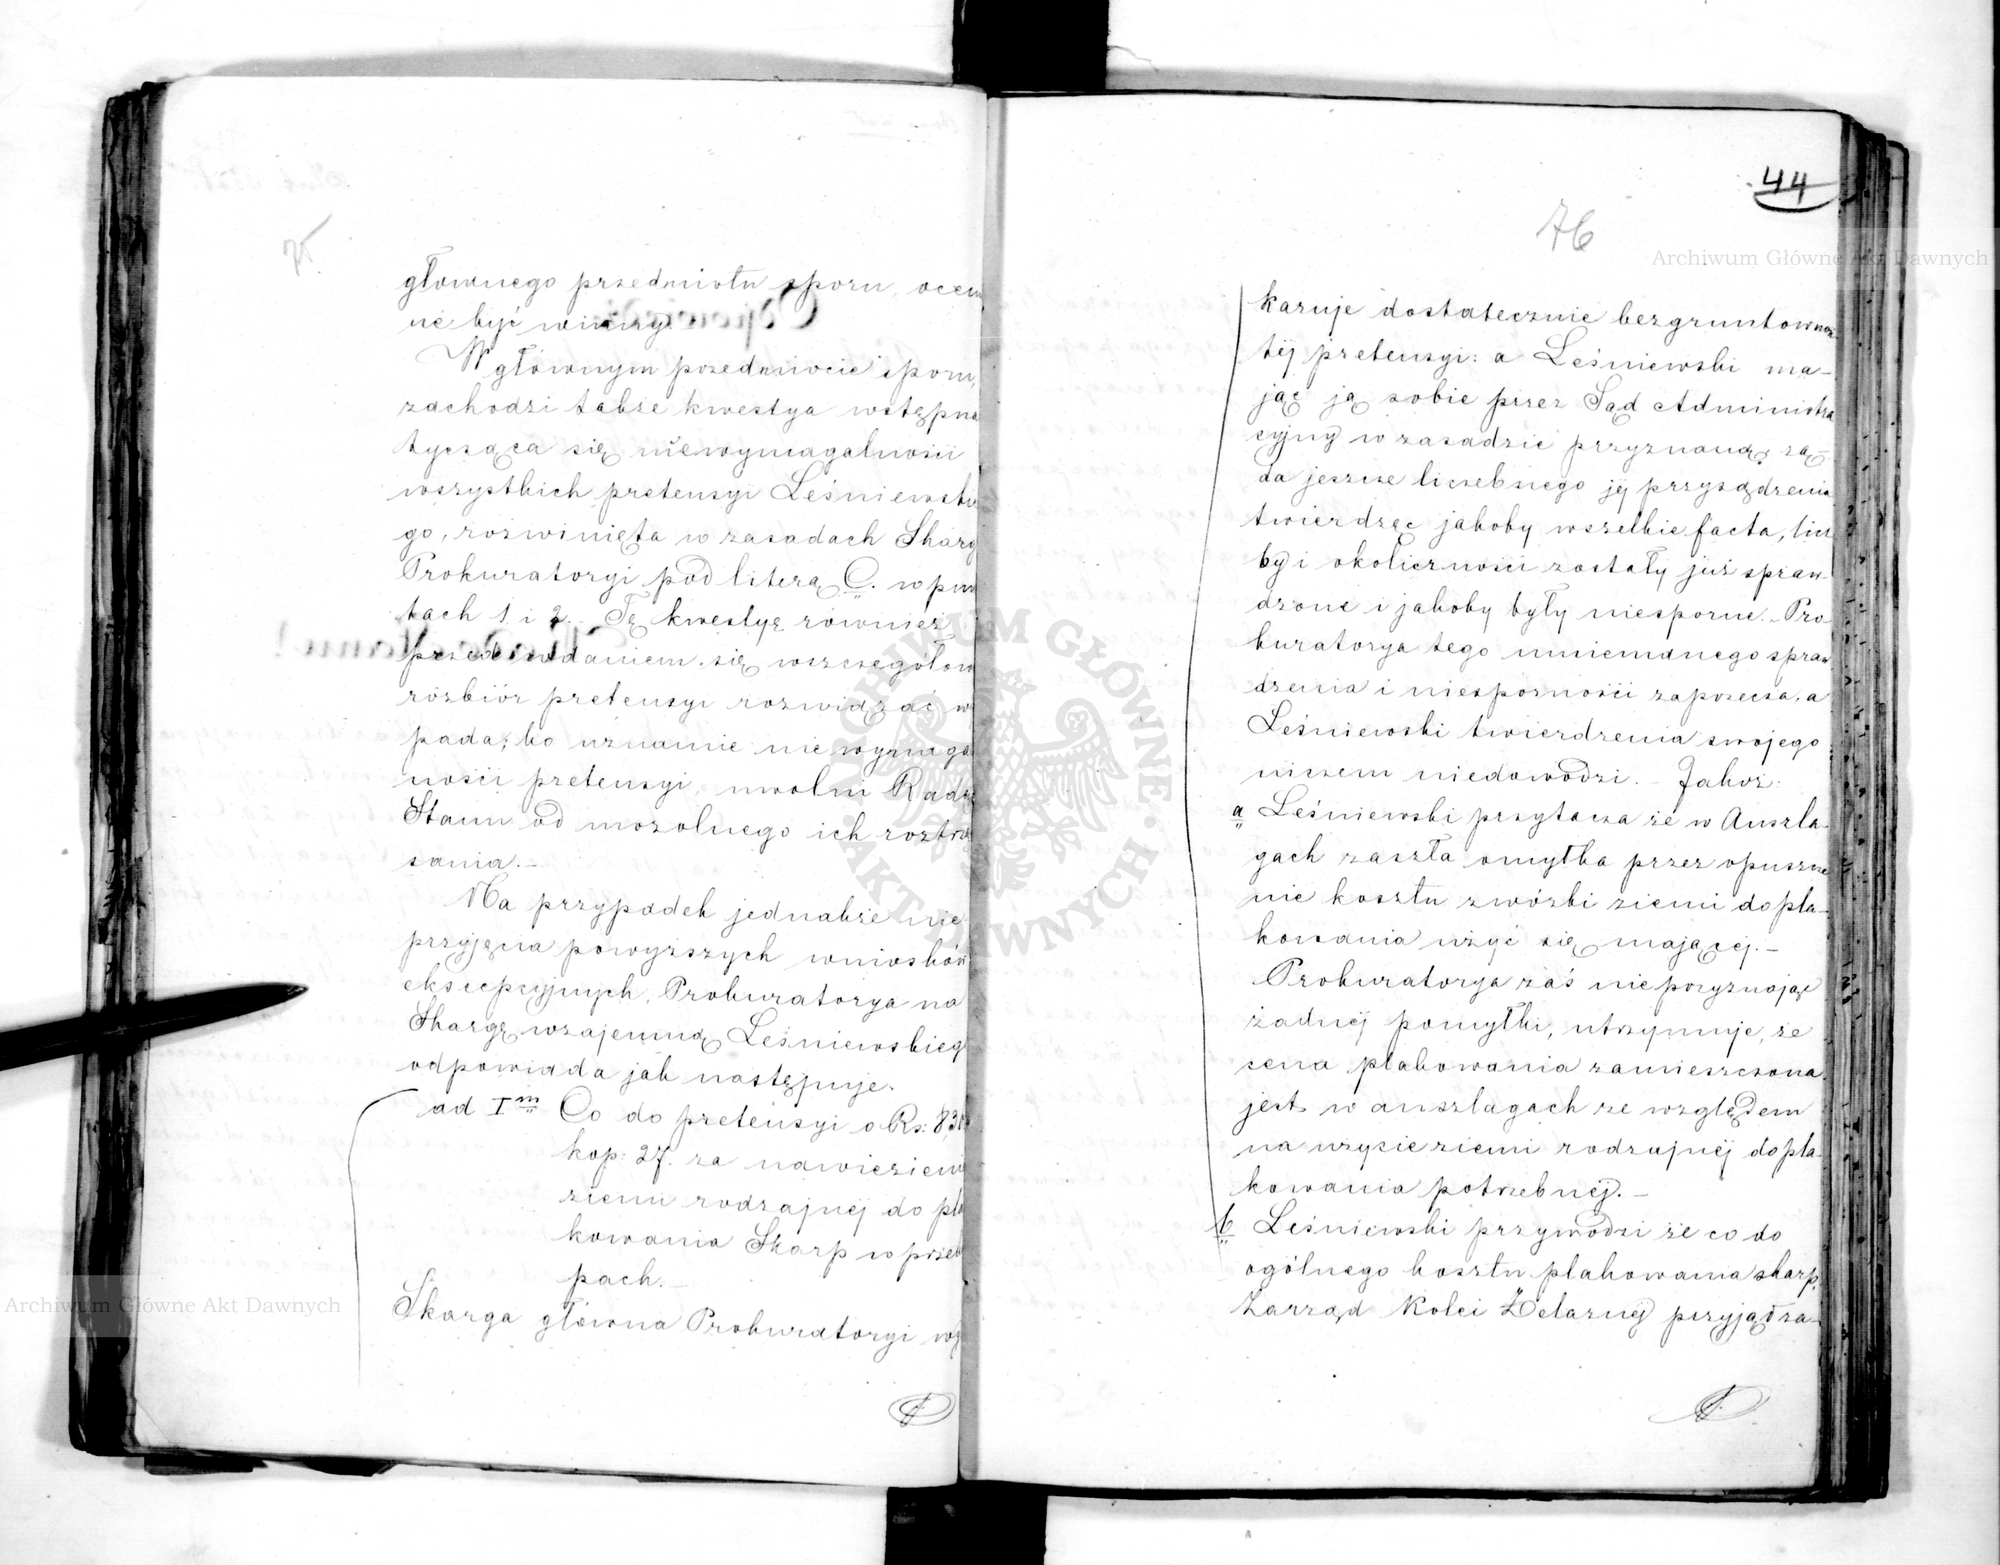 głownego przedmiotu sporu, oceni
né być winny.
W głównym przedmiocie sporu,
zachodzi także kwestya wstępna
tycząca się niewymagalności
wszystkich pretensyi Leśniewskie
go, rozwinięta w zasadach Skarg
Prokuratoryi pod literą C. w pun
ktach 1 i 2. Tę kwestyę również
przed wdaniem się w szczegółow
rozbiór pretensyi rozwiązać wy
pada, bo uznanie nie wymagal
ności pretensyi, uwolni Radę
Stanu od mozolnego ich roztrzą
sania.–
Na przypadek jednakże nie
przyjęcia powyższych wniosków
ekscepcyjnych, Prokuratorya na
Skargę wzajemną Leśniewskieg
odpowiada jak następuje.
ad Im Co do pretensyi o Rs:
kop: 27. za nawiezieni
ziemi rodzajnéj do pla
kowania Skarp w przeko
pach.–
Skarga główna Prokuratoryi wy
44
76
kazuje dostatecznie bezgruntownoś
téj pretensyi: a Leśniewski ma–
jąc ją sobie przez Sąd Administra
cyjny w zasadzie przyznaną, żą–
da jeszcze liczebnego jéj przysądzenia
twierdząc jakoby wszelkie facta, licz
by i okoliczności zostały już spraw–
dzone i jakoby były niesporne.– Pro
kuratorya tego mniemanego spraw
dzenia i niesporności zaprzecza, a
Leśniewski twierdzenia swojego
niczem niedowodzi.– Jakoż:
a Leśniewski przytacza że w Anszla–
gach zaszła omyłka przez opuszcze
nie kosztu zwózki ziemi do pla–
kowania użyć się mającéj.–
Prokuratorya zaś nieprzyznając
żadnéj pomyłki, utrzymuje, że
cena plakowania zamieszczona
jest w anszlagach ze względem
na użycie ziemi rodzajnéj do pla–
kowania potrzebnéj.–
b Leśniewski przywodzi że co do
ogólnego kosztu plakowania skarp,
Zarząd Kolei Żelaznéj przyjął za–
Archiwum Główne Akt Dawnych
Archiwum Główne Akt Dawnych
ARCHIWUM GŁÓWNE AKT DAWNYCH